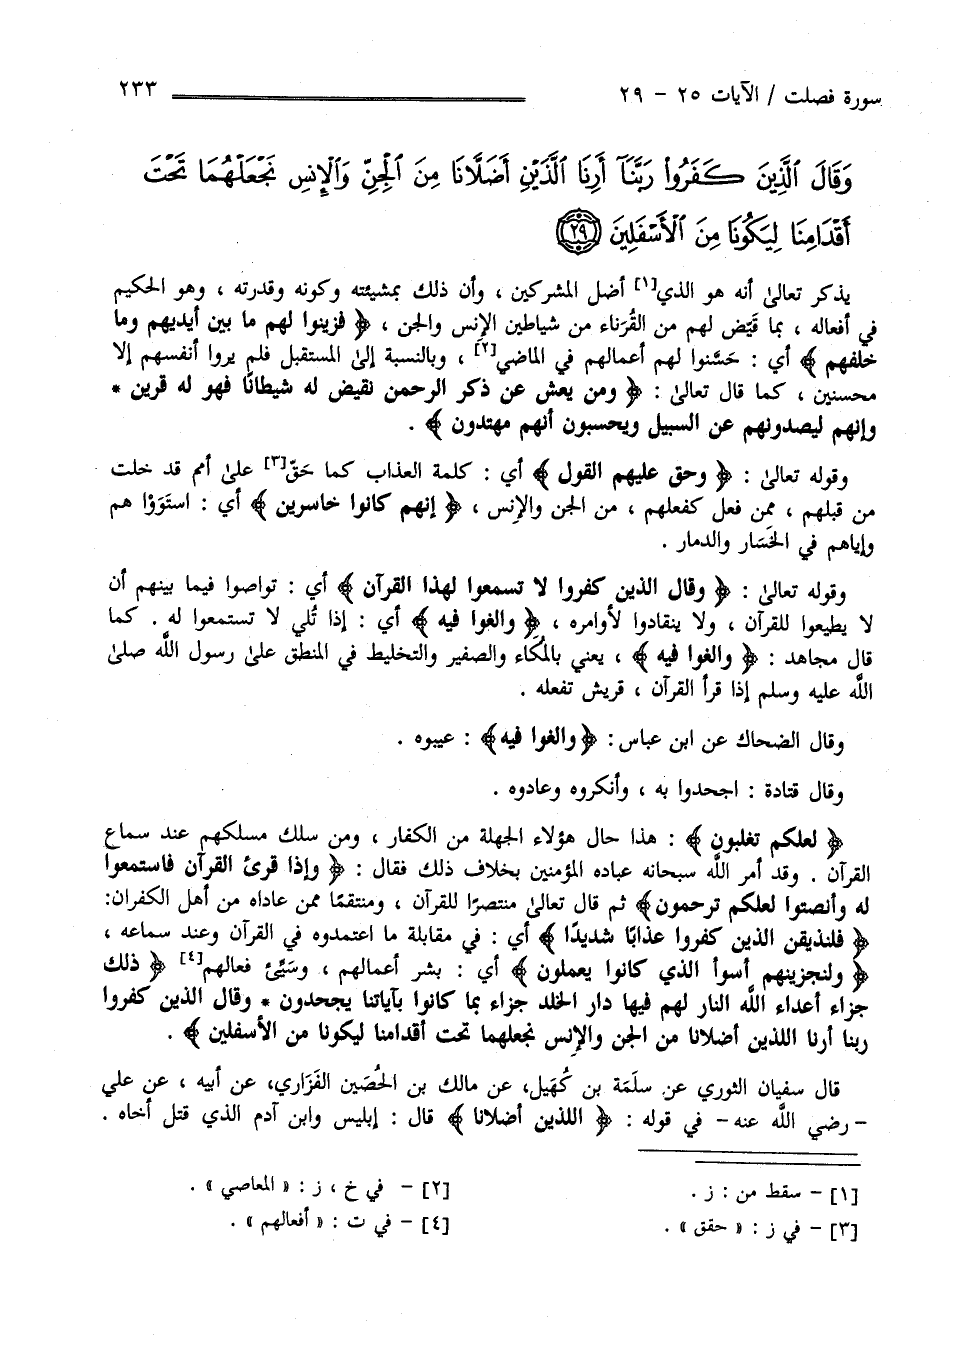 سورة فصلت / الآيات ٢٥ - ٢٩
٢٣٣
وَقَالَ ٱلَّذِينَ كَفَرُوا۟ رَبَّنَآ أَرِنَا ٱلَّذَيْنِ أَضَلَّانَا مِنَ ٱلْجِنِّ وَٱلْإِنسِ نَجْعَلْهُمَا تَحْتَ
أَقْدَامِنَا لِيَكُونَا مِنَ ٱلْأَسْفَلِينَ ٢٩
يذكر تعالىٰ أنه هو الذي[١] أضل المشركين ، وأن ذلك بمشيئته وكونه وقدرته ، وهو الحكيم
في أفعاله ، بما قَيّض لهم من القُرَناء من شياطين الإنس والجن ، ﴿ فزينوا لهم ما بين أيديهم وما
خلفهم ﴾ أي : حَسَّنوا لهم أعمالهم في الماضي[٢] ، وبالنسبة إلىٰ المستقبل فلم يروا أنفسهم إلا
محسنين ، كما قال تعالىٰ : ﴿ ومن يعش عن ذكر الرحمن نقيض له شيطانًا فهو له قرين *
وإنهم ليصدونهم عن السبيل ويحسبون أنهم مهتدون ﴾ .
وقوله تعالىٰ : ﴿ وحق عليهم القول ﴾ أي : كلمة العذاب كما حَقّ[٣] علىٰ أمم قد خلت
من قبلهم ، ممن فعل كفعلهم ، من الجن والإنس ، ﴿ إنهم كانوا خاسرين ﴾ أي : استَوَوْا هم
وإياهم في الخَسَار والدمار .
وقوله تعالىٰ : ﴿ وقال الذين كفروا لا تسمعوا لهذا القرآن ﴾ أي : تواصوا فيما بينهم أن
لا يطيعوا للقرآن ، ولا ينقادوا لأوامره ، ﴿ والغوا فيه ﴾ أي : إذا تُلي لا تستمعوا له . كما
قال مجاهد : ﴿ والغوا فيه ﴾ ، يعني بالمُكَاء والصفير والتخليط في المنطق علىٰ رسول اللَّه صلىٰ
اللَّه عليه وسلم إذا قرأ القرآن ، قريش تفعله .
وقال الضحاك عن ابن عباس: ﴿والغوا فيه﴾ : عيبوه .
وقال قتادة : اجحدوا به ، وأنكروه وعادوه .
﴿ لعلكم تغلبون ﴾ : هذا حال هؤلاء الجهلة من الكفار ، ومن سلك مسلكهم عند سماع
القرآن . وقد أمر اللَّه سبحانه عباده المؤمنين بخلاف ذلك فقال : ﴿ وإذا قرئ القرآن فاستمعوا
له وأنصتوا لعلكم ترحمون﴾ ثم قال تعالىٰ منتصرًا للقرآن ، ومنتقمًا ممن عاداه من أهل الكفران:
﴿ فلنذيقن الذين كفروا عذابًا شديدًا ﴾ أي : في مقابلة ما اعتمدوه في القرآن وعند سماعه ،
﴿ ولنجزينهم أسوأ الذي كانوا يعملون ﴾ أي : بشر أعمالهم ، وسَيِّئ فعالهم[٤] ﴿ ذلك
جزاء أعداء اللَّه النار لهم فيها دار الخلد جزاء بما كانوا بآياتنا يجحدون * وقال الذين كفروا
ربنا أرنا اللذين أضلانا من الجن والإنس نجعلهما تحت أقدامنا ليكونا من الأسفلين ﴾ .
قال سفيان الثوري عن سلَمَة بن كُهَيل، عن مالك بن الحُصَين الفَزَاري، عن أبيه ، عن علي
- رضي اللَّه عنه- في قوله : ﴿ اللذين أضلانا ﴾ قال : إبليس وابن آدم الذي قتل أخاه .
[١] - سقط من : ز .
[٢] - في خ ، ز : « المعاصي » .
[٣] - في ز : « حقق » .
[٤] - في ت : « أفعالهم » .